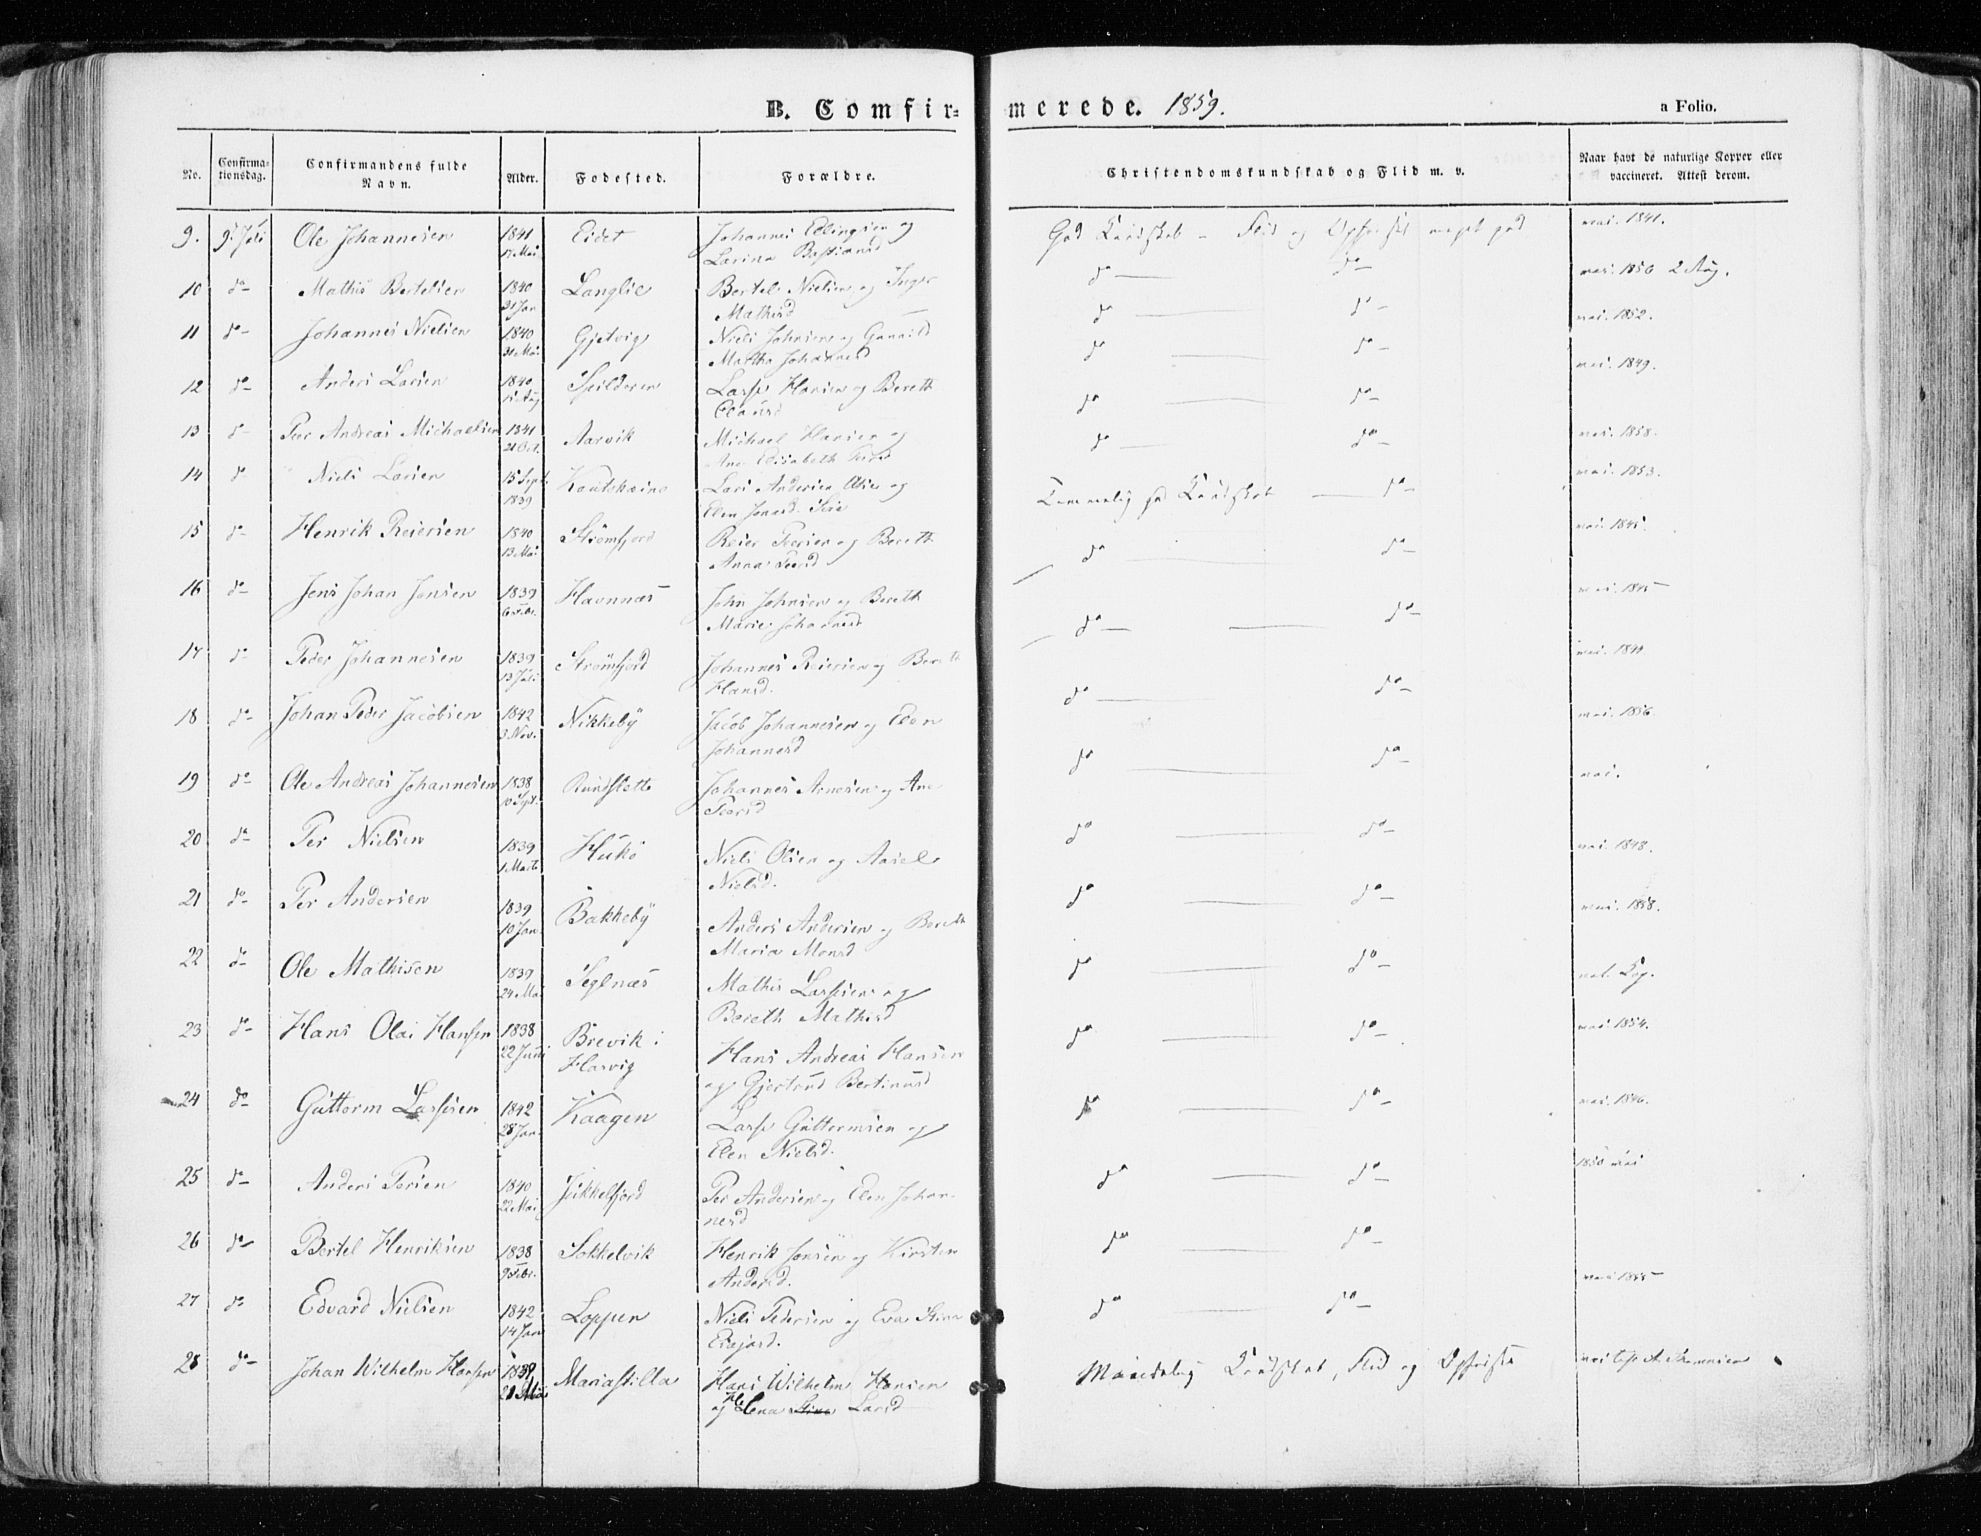 B. Comfir=merede. 1859.
a Folio.
No. Confirma-tionsdag. Confirmandens fulde Navn. Alder. Fødested. Forældre. Christendomskundskab og Flid m. v. Naar havt de naturlige Kopper eller vaccineret. Attest derom.
9. 9. Juli Ole Johannesen 1841 Eidet Johannes Edlingsen og God Kundskab – Flid og Opførsel meget god vac. 1841.
17 Mai Larina Bastiansd
10 do Mathis Bertelsen 1840 Langlie Bertel Nielsen og Inger do do vac. 1850 2 Aug.
31 Jan Mathisd
11 do Johannes Nielsen 1840 Gjetvig Niels Johnsen og Gunnild do do vac. 1852.
31 Mai Martha Johannesd
12 do Anders Larsen 1840 Spilderen Lars Hansen og Bereth do do vac. 1849.
Aug Clausd
13 do Peer Andreas Michaelsen 1841 Aarvik Michael Hansen og do do vac. 1858.
21 Oct. Ane Elisabeth
14 do Niels Larsen 15 Sept. Kautokeino Lars Andersen og do do vac. 1853.
1839 Elen Jonasd.
15 do Henrik Reiersen 1840 Strömfjord Reier Peersen og Bereth Temmelig god Kundskab do vac. 1845.
13 Mai Anna Peersd
16 do Jens Johan Jonsen 1839 Havnnæs John Johnsen og Bereth do do vac. 1845
6 Febr. Marie Johannesd
17 do Peder Johannesen 1839 Strömfjord Johannes Reiersen og Bereth do do vac. 1844
13 Juli Hansd.
18 do Johan Peder Jacobsen 1842 Nikkeby Jacob Johannesen og Elen do do vac. 1856.
3 Nov. Johannesd
19 do Ole Andreas Johannesen 1838 Rundslette Johannes Arnesen og Ane do do vac.
10 Sept. Peersd
20 do Per Nielsen 1839 Hukö Niels Olsen og Aasel do do vac. 1848.
1 Marts Nielsd.
21 do Per Andersen 1839 Bakkeby Anders Andersen og Bereth do do vac. 1858.
10 Jan Maria Monsd
22 do Ole Mathisen 1839 Seglnæs Mathis Larsen og do do nat. Kop.
24 Mai Bereth Mathisd
23 do Hans Olai Hansen 1838 Brevik i Hans Andreas Hansen do do vac. 1854.
22 Juni Hasvig og Gjertrud Bertinusd
24 do Guttorm Larssen 1842 Kaagen Lars Guttormsen og do do vac. 1846.
28 Jan. Elen Nielsd.
25 do Anders Persen 1840 Jøkkelfjord Per Andersen og Elen Johan- do do 1850 vac
22 Mai nesd
26 do Bertel Henriksen 1838 Sokkelvik Henrik Jonsen og Kirsten do do
9 Febr. Andersd.
27 do Edvard Nielsen 1842 Loppen Niels Pedersen og Eva Stina do do vac 1855
14 Jan
28 do Johan Wilhelm Hansen 1839 Mariastilla Hans Wilhelm Hansen Maadelig Kundskab, Flid og Opførsel
21 Mai og Helena Larsd